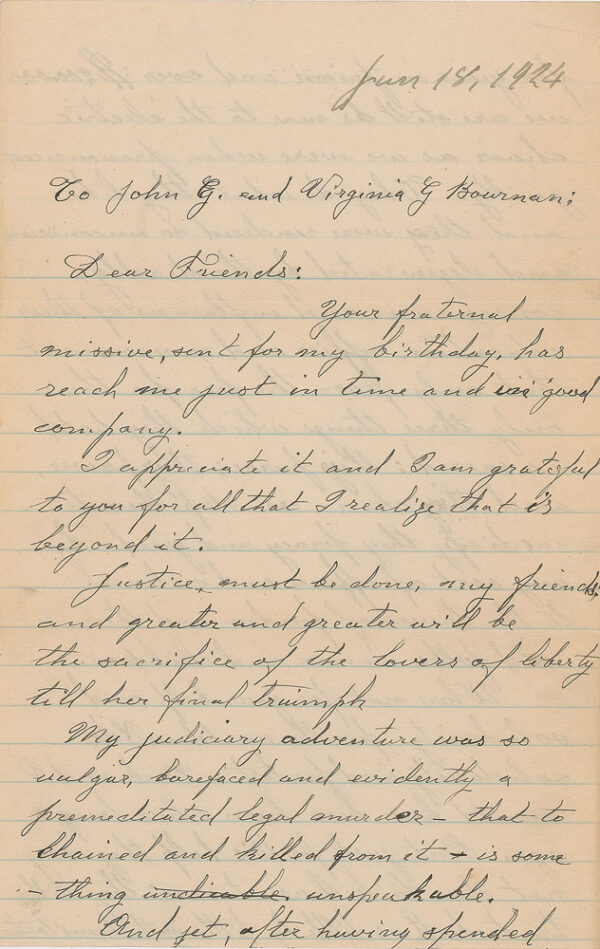 Jun 18, 1924
To John G. and Virginia G Bowman;
Dear Friends:
Your fraternal
missive, sent for my birthday, has
reach me just in time and in good
company.
I appreciate it and I am grateful
to you for all that I realize that is
beyond it.
Justice, must be done, my friends;
and greater and greater will be
the sacrifice of the lovers of liberty
till her final triumph
My judiciary adventure was so
vulgar, barefaced and evidently a
premeditated legal murder – that to
chained and killed from it + is some
– thing unspeakable.
And jet, after having spended